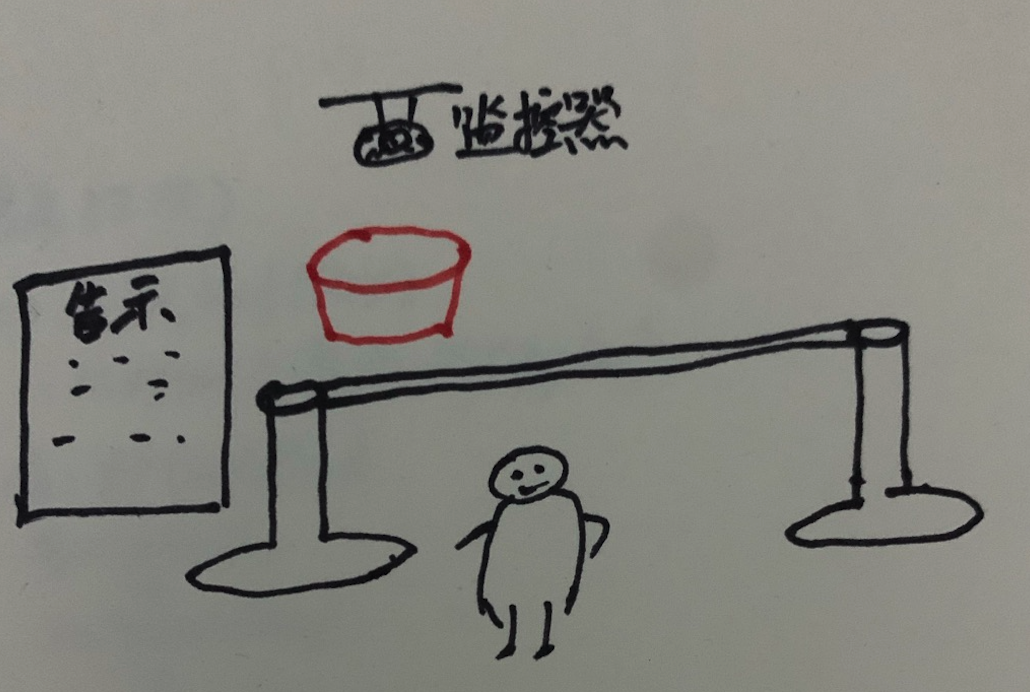 监控器
告示